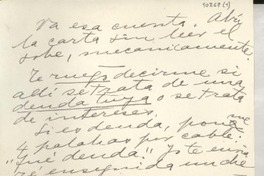 30268 (1)
Va esa cuenta. Abrí
la carta sin leer el
sobre, mecanicamente.
Te ruego decirme si
allí se trata de una
deuda tuya o se trata
de intereses.
Si es deuda, ponme
4 palabras por cable:
"Qué deuda". Yo te env
enseguida un che